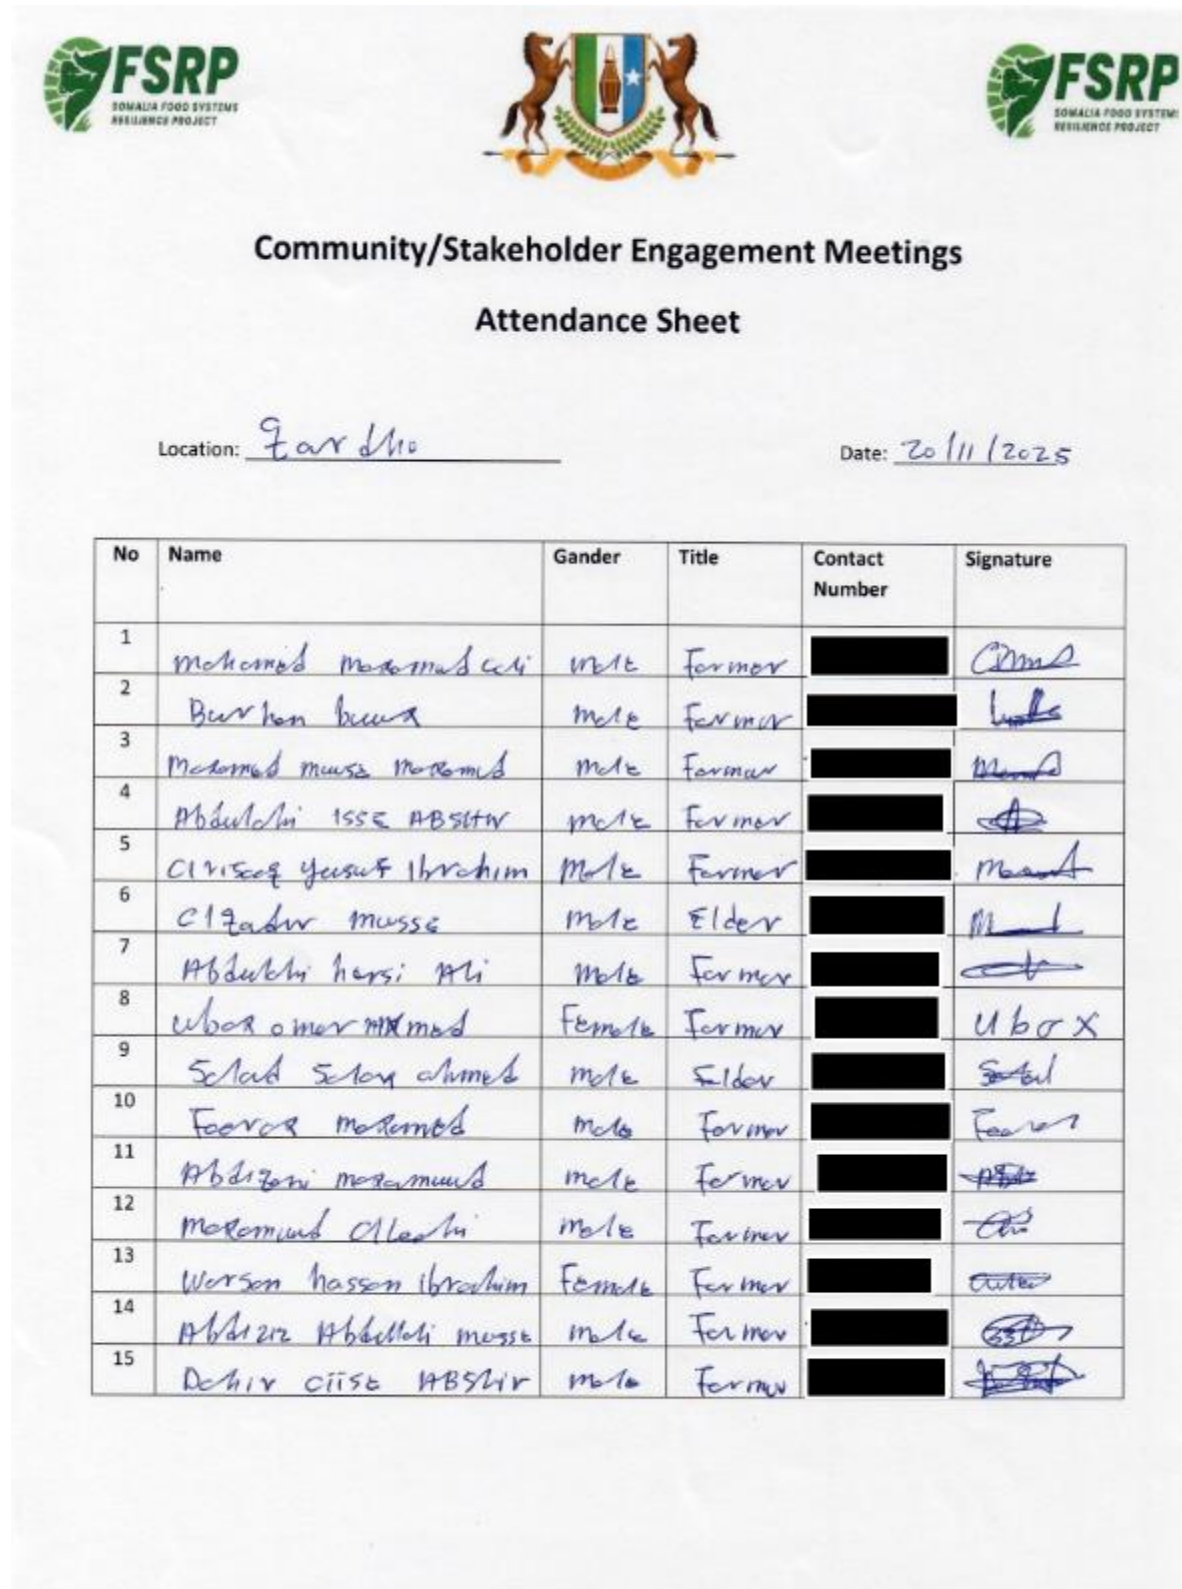 FSRP
SOMALIA FOOD SYSTEMS
RESILIENCE PROJECT
FSRP
SOMALIA FOOD SYSTEMS
RESILIENCE PROJECT
Community/Stakeholder Engagement Meetings
Attendance Sheet
Location: Qardho Date: 20/11/2025
No Name Gander Title Contact Number Signature
1 Mohamed Maxamud Cali male Farmer
2 Burhan male Farmer
3 Maxamed muuse Maxamed male Farmer
4 Abdulahi ISSE ABSHIR male Farmer
5 Yusuf Ibrahim Male Farmer
6 C/Qadir Musse Male Elder
7 Abdulahi hersi Ali Male Farmer
8 Ubax omer Female Farmer Ubax
9 Salad Salax ahmed male Elder
10 Faarax Maxamed male Farmer
11 Abdiqani maxamuud male Farmer
12 Maxamuud male Farmer
13 Warsan hassan ibrahim Female Farmer
14 Abdiziz Abdullahi musse male Farmer
15 Dahir ciise ABShir male Farmer